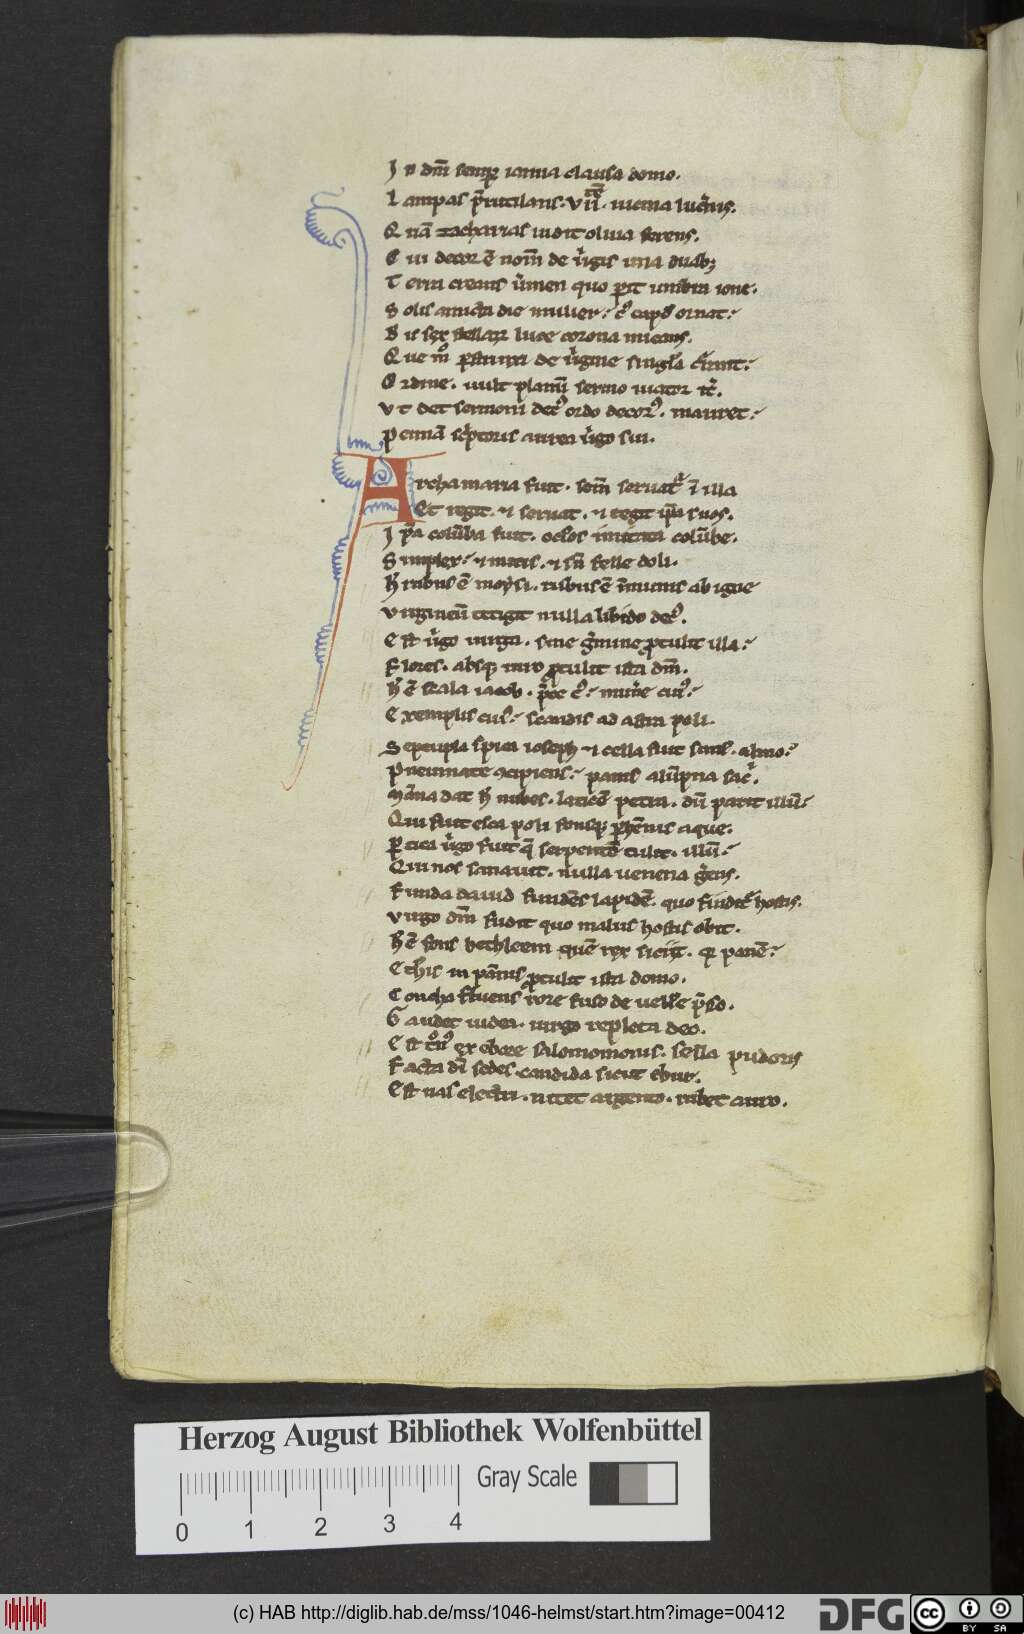 In dm̄ semp ianua clausa domo.
Lampas p̄rutilans. vii. lucernis.
Q nā zacharias uidit oliua ferens.
Cui decor ē nom̄ de uͥgis una duab;
Terra creans uͥmen quo pͥit umbra ione.
Solis amicta die mulier. caput ornat.
Bis sex stellaꝝ luce corona micans.
Que de uͥgine singla
Ordine. uult planū sermo uiator
Vt det sermoni ordo decorꝰ. mauret.
Pennā scͥptoris aurea uͥgo sui.
Archa maria fuit. sem̄ in illa
Et regit. ⁊ seruat. ⁊ tegit suos.
Ip̄a colūba fuit. oclos imitata colūbe.
Simplex. ⁊ mitis. ⁊ sn̄ felle doli.
H rubus ē moysi. rubus ē īmunis ab igne
Virgineū tetigit nulla libido decꝰ.
Est uͥgo uirga. sine gͥmine ꝓtulit illa.
Flores. absqꝫ uiro ꝓtulit ista dm̄.
H ē scala iacob.
Exemplis eiꝰ. scandis ad astra poli.
Septupla spica ioseph ⁊ cella fuit almo.
Pneumate panis alūpna
Māna dat h nubes. laticē petra. dū parit illū.
Qui fuit esca poli fonsqꝫ phēnis aque.
Ptica uͥgo fuit q̄ serpentē tulit. illū.
Qui nos sanauit. nulla uenena gͥens.
Funda dauid fundēs lapidē. quo hostis.
Virgo dm̄ fudit quo malus hostis obit.
H ē fons bethleem quē rex sitiit. panē.
Ethis in ꝓtulit ista domo.
Concha fluens rore fuso de uelle
Gaudet iudea. uirgo repleta deo.
Est ex ebore salomonis. sella pudoris
Facta dī sedes. candida sicut ebur.
Est uas electri. nitet argento. rubet auro.
Herzog August Bibliothek Wolfenbüttel
Gray Scale
0 1 2 3 4
(c) HAB http://diglib.hab.de/mss/1046-helmst/start.htm?image=00412
DFG
cc
BY SA